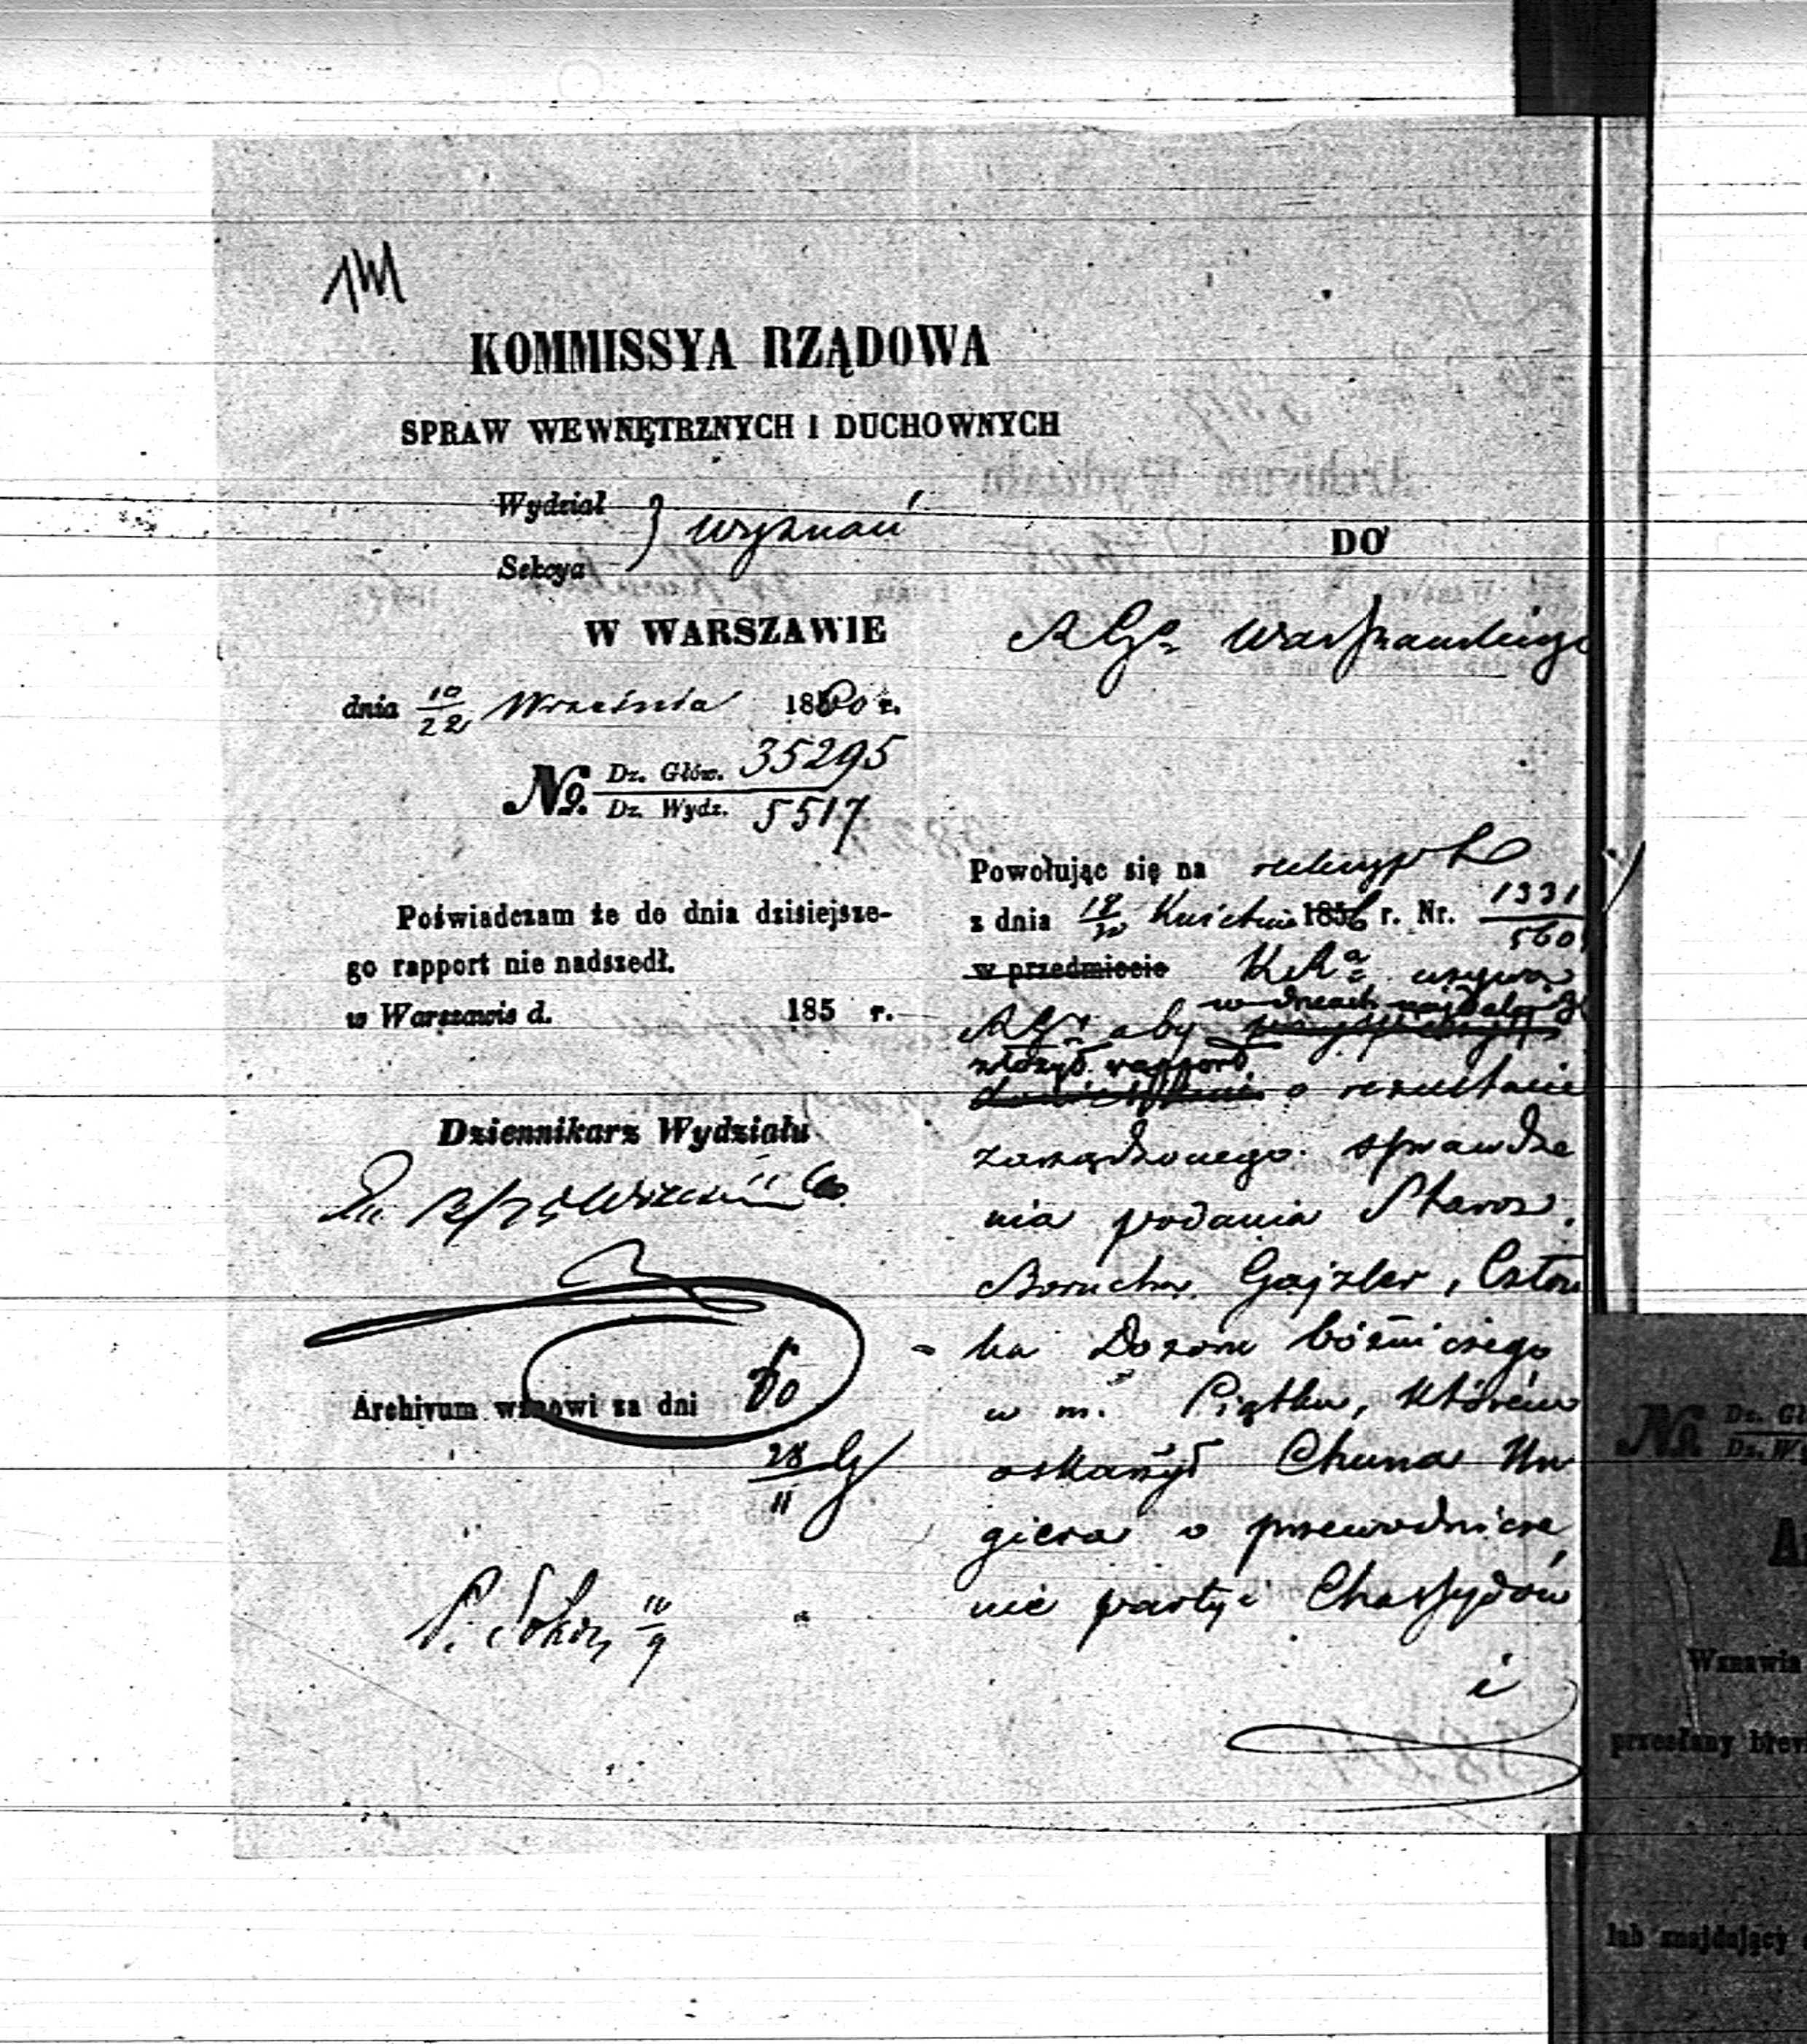 KOMMISSYA RZĄDOWA
SPRAW WEWNĘTRZNYCH I DUCHOWNYCH
Wydział
Sekcya } Wyznań
W WARSZAWIE
dnia 10/22 Września 1860 r.
No. Dz. Głów. 35295
Dz. Wydz. 5517
Poświadczam że do dnia dzisiejsze-
go rapport nie nadszedł.
w Warszawie d. 185 r.
Dziennikarz Wydziału
Archivum wznowi za dni 60
28/11
10/9
DO
Warszawskiego
Powołując się na reskrypt
z dnia 18/30 Kwietnia 1856 r. Nr. 1331/560
w przedmiocie wzywa
aby w dniach najdalej
złożył rapport
o rezultacie
zarządzonego sprawdze
nia podania Staroz.
Borucha Gajzler, Człon
ka Dozoru bóżniczego
w m. Piątku, którém
oskarżył Chuna Un
giera o przewodnicze
nie partyi Chassydów
i
No. Dz. Gł
Dz. Wy
Wznawia
przesłany
lub znajdujący